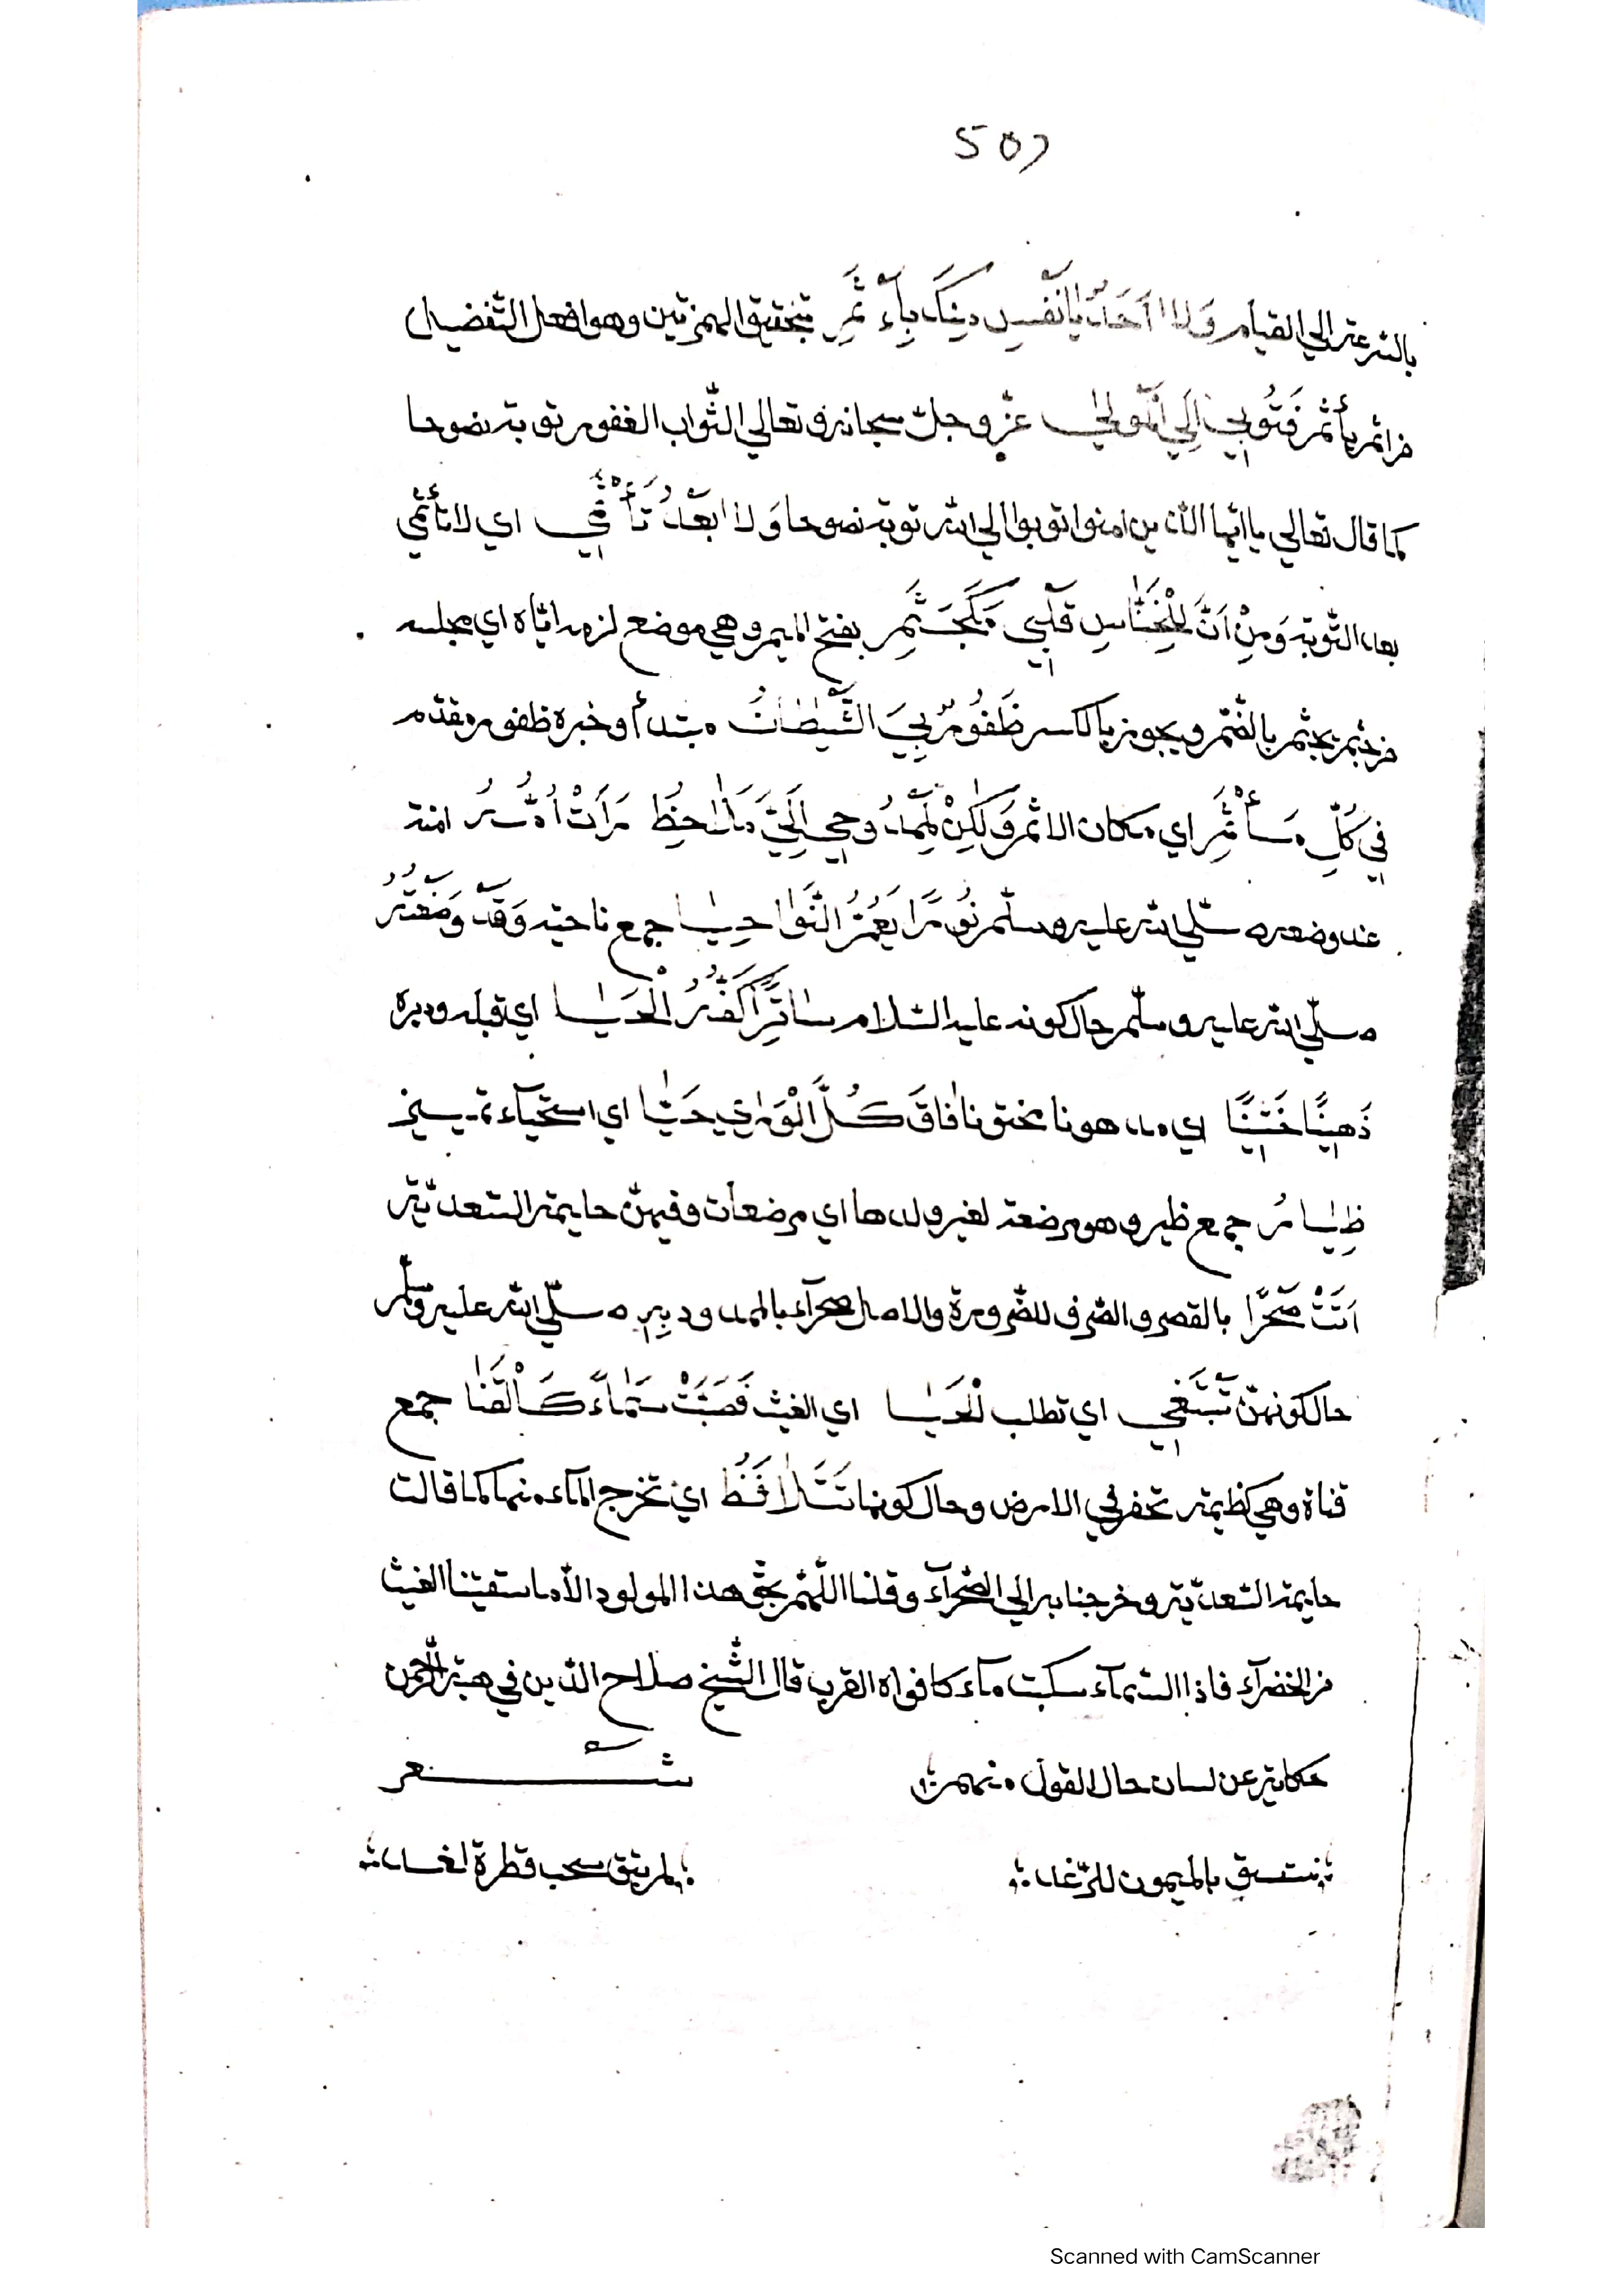 507
بالسّرعة الي القيام وَلَا اَحَدٌ يَا نَفْسِ مِنْكِ بِاٰءثَمِ بتحقيق الهمزتين وهو افعل التّفضيل
من اثم يأثم فَتُوبِيْ اِلَي الْمَوْلٰي عزّ وجلّ سبحانه وتعالي التّواب الغفور توبة نصوحا
كما قال تعالي يا ايّها الذين امنوا توبوا الي الله توبة نصوحا وَلَا بَعْدُ تَأْثَمِيْ اي لا تأثمي
بعد التّوبة وَمِنْ اَنَّ لِلْخَنَّاسِ قَلْبِيْ مَجْثَمِ بفتح الميم وهي موضع لزومه ايّاه اي مجلسه
من جثم يجثم بالضّم ويجوز بالكسر ظَفُورٌ بِيَ الشَّيْطَانُ مبتدأ وخبره ظفور مقدّم
فِيْ كُلِّ مَأْثَمِ اي مكان الاثم وَلٰكِنْ لِمَدْحِيْ اِلَيَّ مَلَاحِظُ رَأَتْ اُمُّهُ امنة
عند وضعه صلّي الله عليه وسلّم نُوْرًا يَعُمُّ النَّوَاحِيَا جمع ناحية وَقَدْ وَضَعَتْهُ
صلّي الله عليه وسلّم حال كونه عليه السّلام سَاتِرًا كَفُّهُ الْحَيَا اي قبله ودبره
دَهِيْنًا خَتِيْنًا اي مدهونا مختونا فَاقَ كُلَّ الْوَرٰي حَيَا اي استحياء تمسيخ
ظِيَارُ جمع ظير وهو مرضعة لغير ولدها اي مرضعات وفيهنّ حليمة السّعديّة
اَتَتْ صَحْرًا بالقصر والصّرف للضّرورة والاصل صحرآء بالمد ودبِهِ صلّي الله عليه وسلّم
حال كونهنّ تَبْتَغِيْ اي تطلب الْحَيَا اي الغيث فَصَبَّتْ سَمَاءً كَالْقَنَا جمع
قناة وهي كظيمة تحفر في الارض وحال كونها تَتَلَافَظُ اي تخرج المآء منها كما قالت
حليمة السّعديّة وخرجنا به الي الصّحرآء وقلنا اللّهمّ بحقّ هذا المولود الّا ما سقيتنا الغيث
من الخضرآء فاذا السّمآء سكبت مآء كافواه القرب قال الشّيخ صلاح الدّين في هبة الرّحمن
حكاية عن لسان حال القول منهم شعر
نستسق بالميمون للرّغد لم يبق سحب قطرة لغد
Scanned with CamScanner